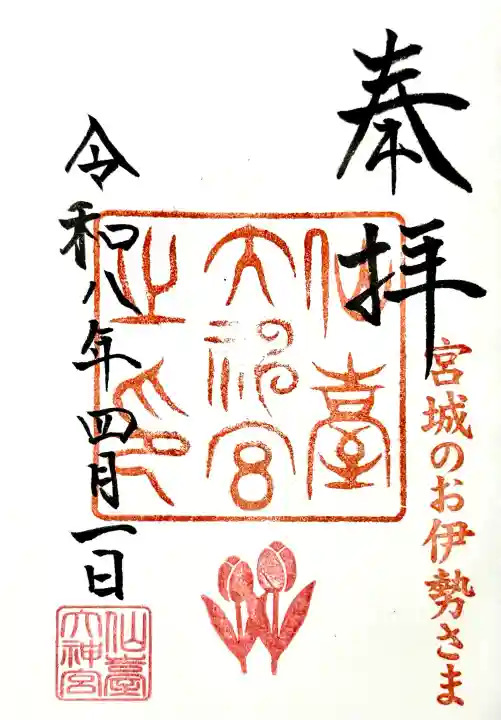 奉拝
宮城のお伊勢さま
仙臺
大神宮
之印
令和八年四月一日
仙臺
大神宮